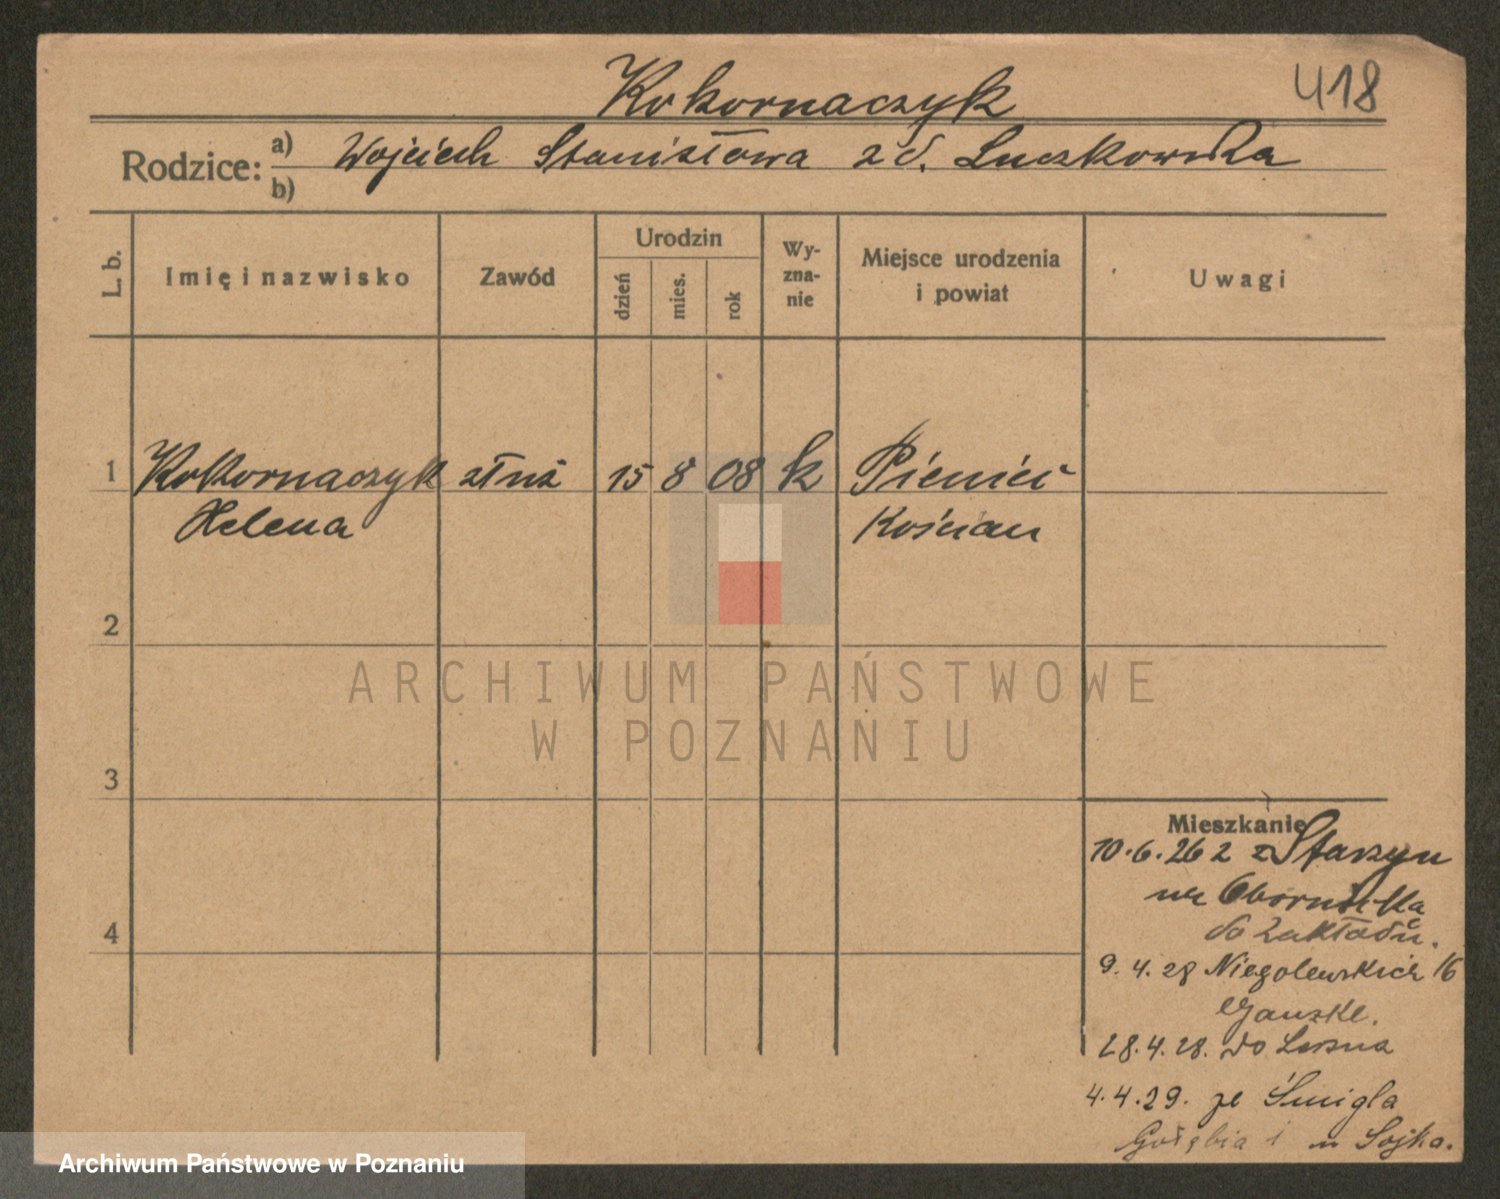 Kokornaczyk
418
Rodzice: a) Wojciech Stanisława z d. Luczkowska
b)
L. b.
Imię i nazwisko
Zawód
Urodzin
dzień
mies.
rok
Wy-
zna-
nie
Miejsce urodzenia
i powiat
Uwagi
1 Kokornaczyk służ 15 8 08 k
Helena Kościan
2
ARCHIWUM PAŃSTWOWE
W POZNANIU
3
Mieszkanie
10.6.26 z Starzyn
Obornicka
do Zakładu.
4
9.4.28 Niegolewskich 16
Ganske.
28.4.28. do Leszna
4.4.29. ze Śmigla
Gołębia 1 Sojka.
Archiwum Państwowe w Poznaniu